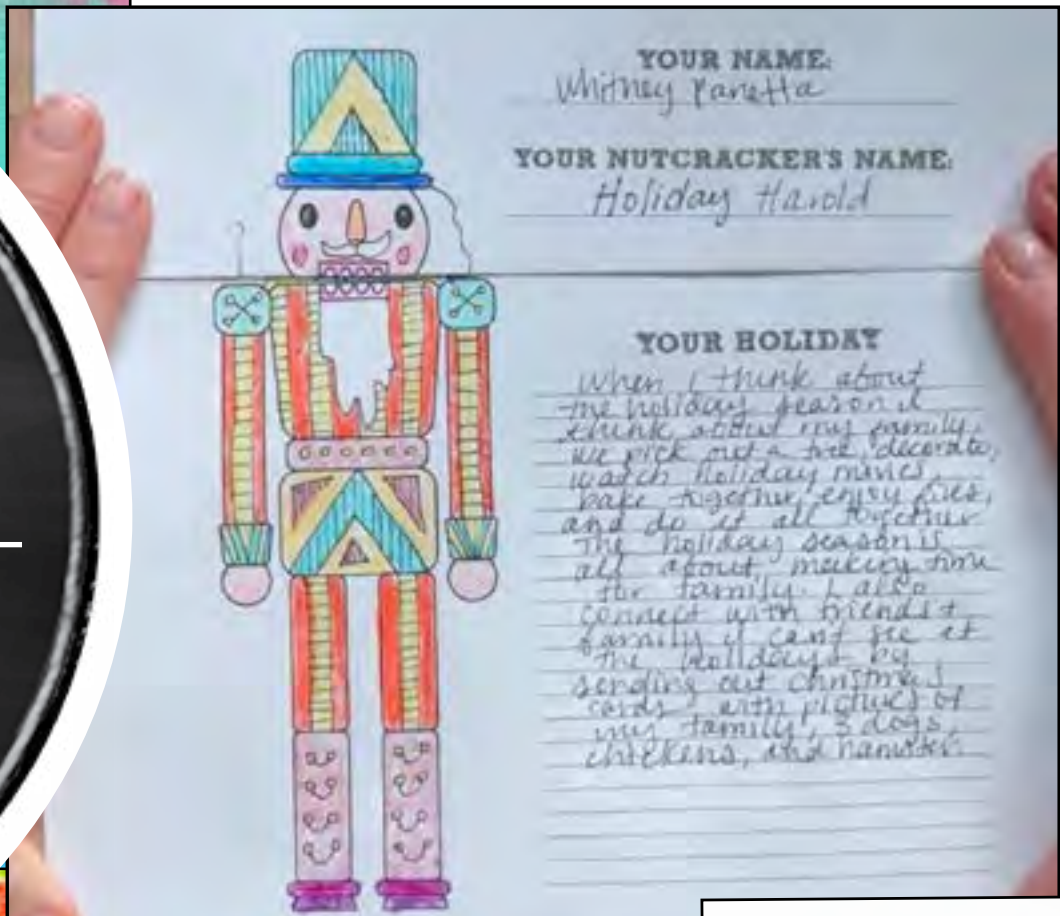 YOUR NAME:
Whitney Panetta
YOUR NUTCRACKER'S NAME:
Holiday Harold
YOUR HOLIDAY
When I think about
the holiday season I
think about my family.
we pick out a tree, decorate,
watch holiday movies,
bake together, enjoy fires,
and do it all together
The holiday season is
all about making time
for family. I also
connect with friends +
family I cant see at
the holidays by
sending out christmas
cards with pictures of
my family, 3 dogs,
chickens, and hamster.